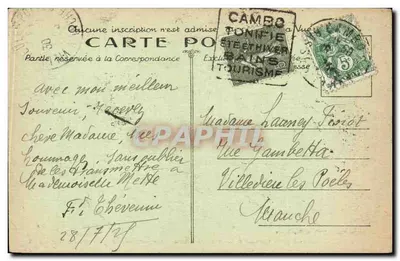 Aucune inscription n'est admise
CARTE PO
Partie réservée à la Correspondance
CAMBO
TONIFIE
ETE ET HIVER
BAINS
TOURISME
5
CPAPHIL
Avec mon meilleur
souvenir, recevez
chère Madame, mes
hommages, sans oublier
de les transmettre à
Mademoiselle
Ft Thévenin
28/7/25
Madame Launey
Rue Gambetta
Villedieu les Poêles
Manche